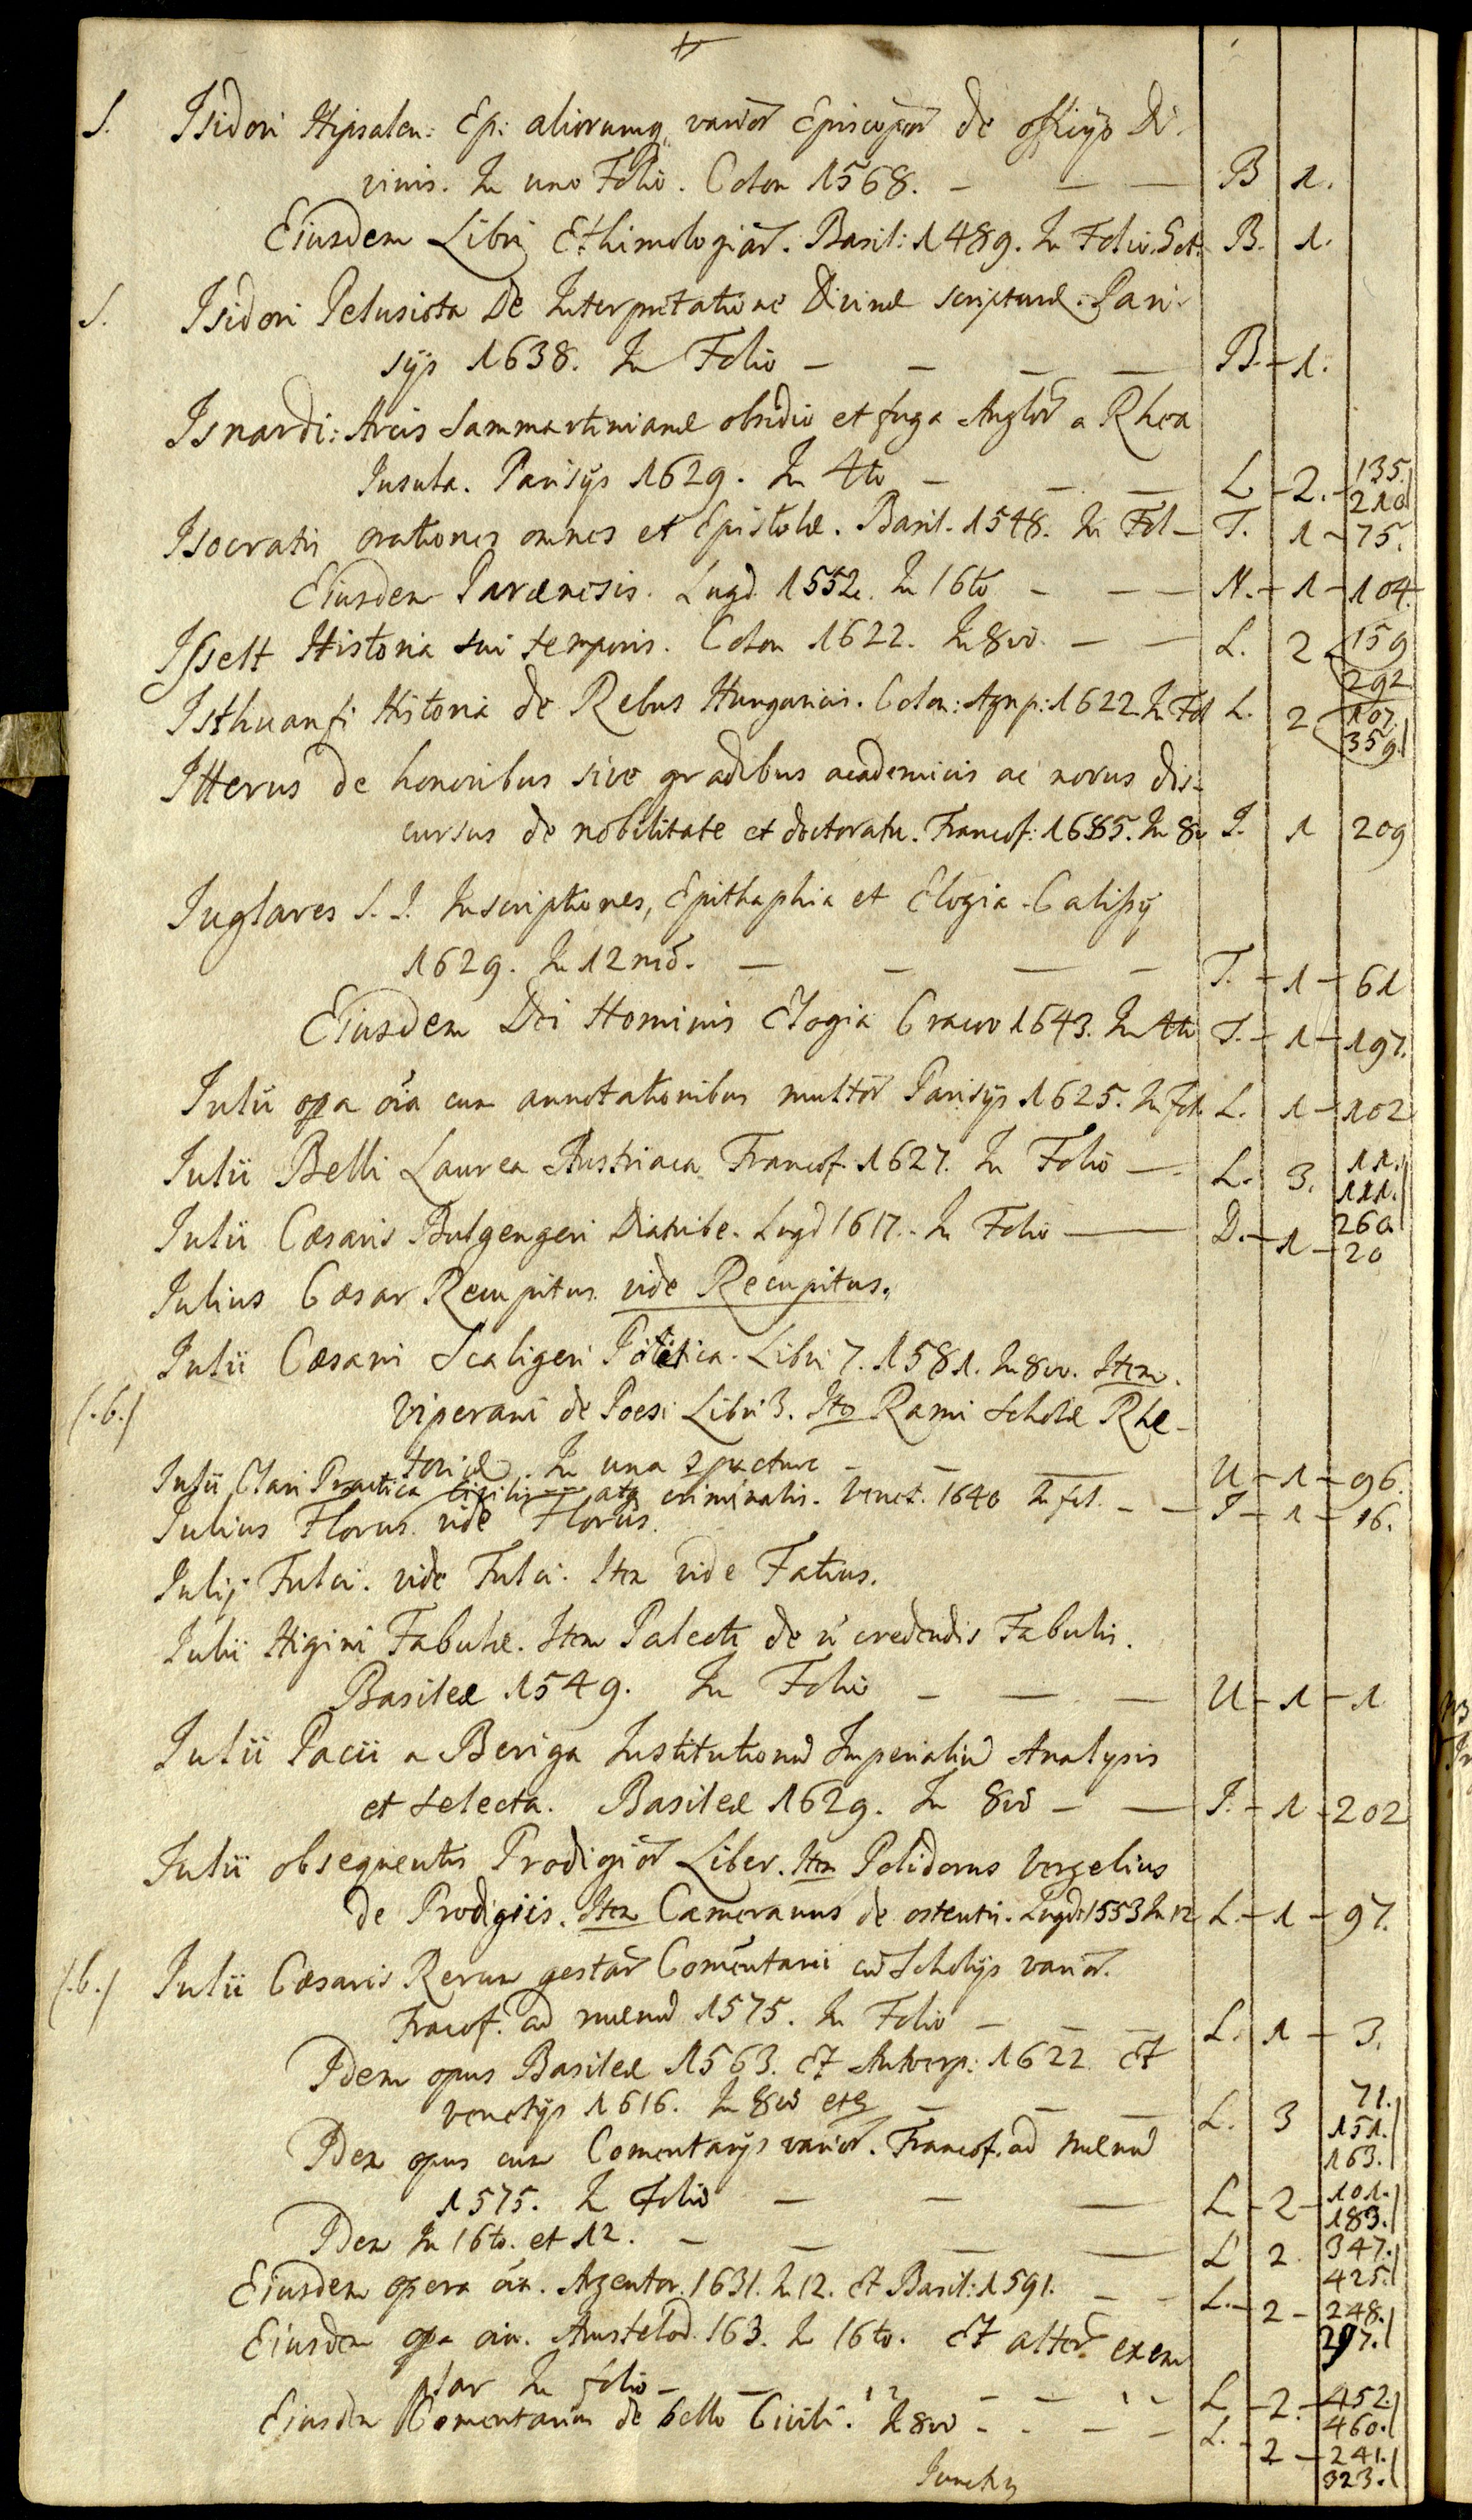 S. Isidori Hipsalen: Ep: aliorumq varior Episcopor de officijs Di-
vinis. In uno Folio. Colon 1568. — — — B 1.
Eiusdem Libri Ethimologiar. Basil: 1489. In Folio. B. 1.
S. Isidori Pelusiota De Interpretatione Divinæ scripturæ. Pari-
sijs 1638. In Folio — — — — B. — 1.
Isnardi: Arcis Sammartinianæ obsidio et fuga Anglor a Rhea
Insula. Parisijs 1629. In 4to — — — L — 2. — 135.
210
Isocratis orationes omnes et Epistolæ. Basil. 1548. In Fol — T. 1 — 75.
Eiusdem Parænesis. Lugd. 1552. In 16to — — — N. — 1 — 104.
Isselt Historia sui temporis. Colon 1622. In 8vo. — — L. 2 159
292
Isthuanfi Historia de Rebus Hungaricis. Colon: Agrip: 1622 In Fol L. 2 107.
359.
Itterus de honoribus sive gradibus academicis ac novus dis-
cursus de nobilitate et doctoratu. Francof: 1685. In 8v I. 1 209
Iuglares S. I. Inscriptiones, Epithaphia et Elogia.
1629. In 12mo. — — — — T. — 1 — 61
Eiusdem Dei Hominis Elogia Cracov 1643. In 4to T. — 1 — 197.
Iulii opa oia cum annotationibus multor Parisijs 1625. In fol. L. 1 — 102
Iulii Belli Laurea Austriaca Francof. 1627. In Folio — L. 3. 11.
111.
260.
Iulii Cæsaris Bulgengeri Diatribe. Lugd 1617. In Folio — D. — 1 — 20
Iulius Cæsar Recupitus vide Recupitus.
Iulii Cæsaris Scaligeri Poëtica. Libri 7. 1581. In 8vo. Item.
(.b.) Viperani de Poesi Libri 3. Ito Rami Scholæ Rhe-
toricæ. In una — — — U — 1 — 96.
Iulii Clari Practica Civilis atq criminalis. Venet. 1640 In fol. — — I — 1 — 16.
Iulius Florus. vide Florus.
Iulij Fulci. vide Fulci. Item vide Fatius.
Iulii Higini Fabulæ. Item Palects de n credendis Fabulis.
Basileæ 1549. In Folio — — — U — 1 — 1
Iulii Pacii a Beriga Institutionū Imperialiū Analysis
et selecta. Basileæ 1629. In 8vo — — I. — 1 — 202
Iulii obsequentis Prodigior Liber. Item Polidorus Vergelius
de Prodigiis. Item Camerarius de ostentis. Lugd: 1553 In 12 L. — 1 — 97.
(.b.) Iulii Cæsaris Rerum gestar Comentarii cū Scholijs varior.
Fracof. ad mœnū 1575. In Folio — — — L. 1 — 3.
Idem opus Basileæ 1563. Et Antverp: 1622. Et
venetijs 1616. In 8vo — — — L. 3 71.
151.
163.
Idem opus cum Comentarijs varior. Francof. ad mœnū
1575. In Folio — — — L — 2 — 101.
183.
Idem In 16to. et 12. — — — — L 2. 347.
425.
Eiusdem opera oia. Argentor. 1631. In 12. Et Basil: 1591. — — L. — 2 — 248.
297.
Eiusdem opa oia. Amstelod. 163. In 16to. Et alter exem
plar In folio — — — — L — 2. — 452.
460.
Eiusdem Comentarior de bello Civili. In 8vo — — — L. — 2 — 241.
323.